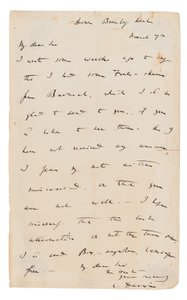 Down Bromley Kent
March 7th
My dear Sir
I wrote some weeks ago to say
that I had some Fowls-skins
from Burmah, which I sh. be
glad to send to you, if you
w. like to see them. As I
have not received any answer,
I fear my note either
miscarried, or that you
are not well. — I hope
sincerely that the latter
alternative is not the true one.
I c. send Box, anywhere, carriage
free. —
My dear Sir
Yours sincerely
C. Darwin